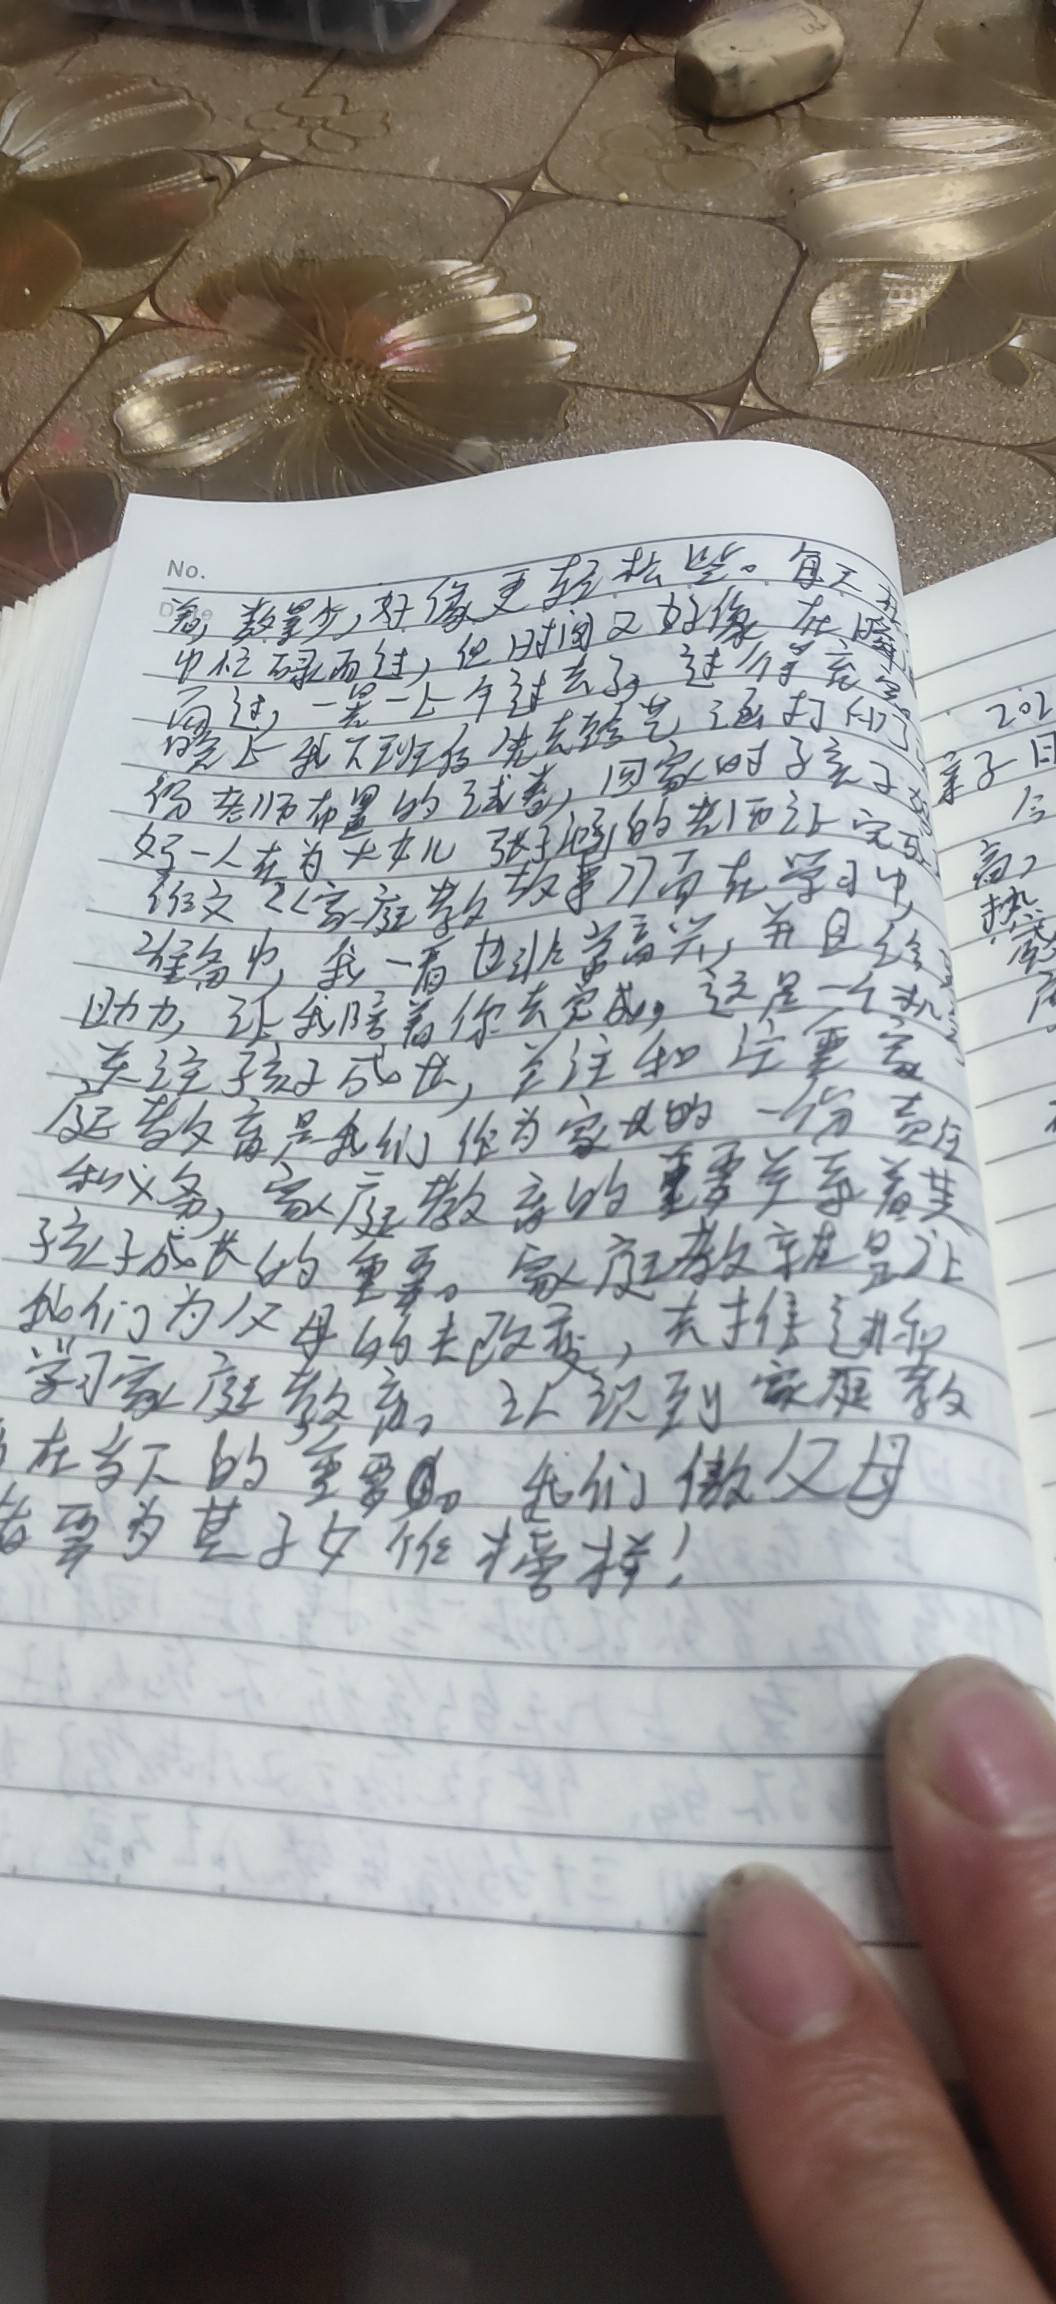 No.
Date
差,数量少,好像更轻松些。每天
中忙碌而过,但时间又好像在
而过,一晃一上午过去了,过个
晚上我下班后先去 打印
份老师布置的试卷,回家时子
好一人在为大女儿 的老师让完成
作文《家庭教 故事》而在学习中,
准备中,我一看也非常高兴,并且给
助力,让我陪着你去完成。这是一个机
关注孩子成长,关注和注重家
庭教育是我们作为家长的一份责任
和义务,家庭教育的重要关系着其
孩子成长的重要。家庭教就是让
我们为父母的去改变,去推进和
学习家庭教育。认识到家庭教
育在当下的重要。我们做父母
者要为其子女作榜样!
202
亲子日
今
高
热